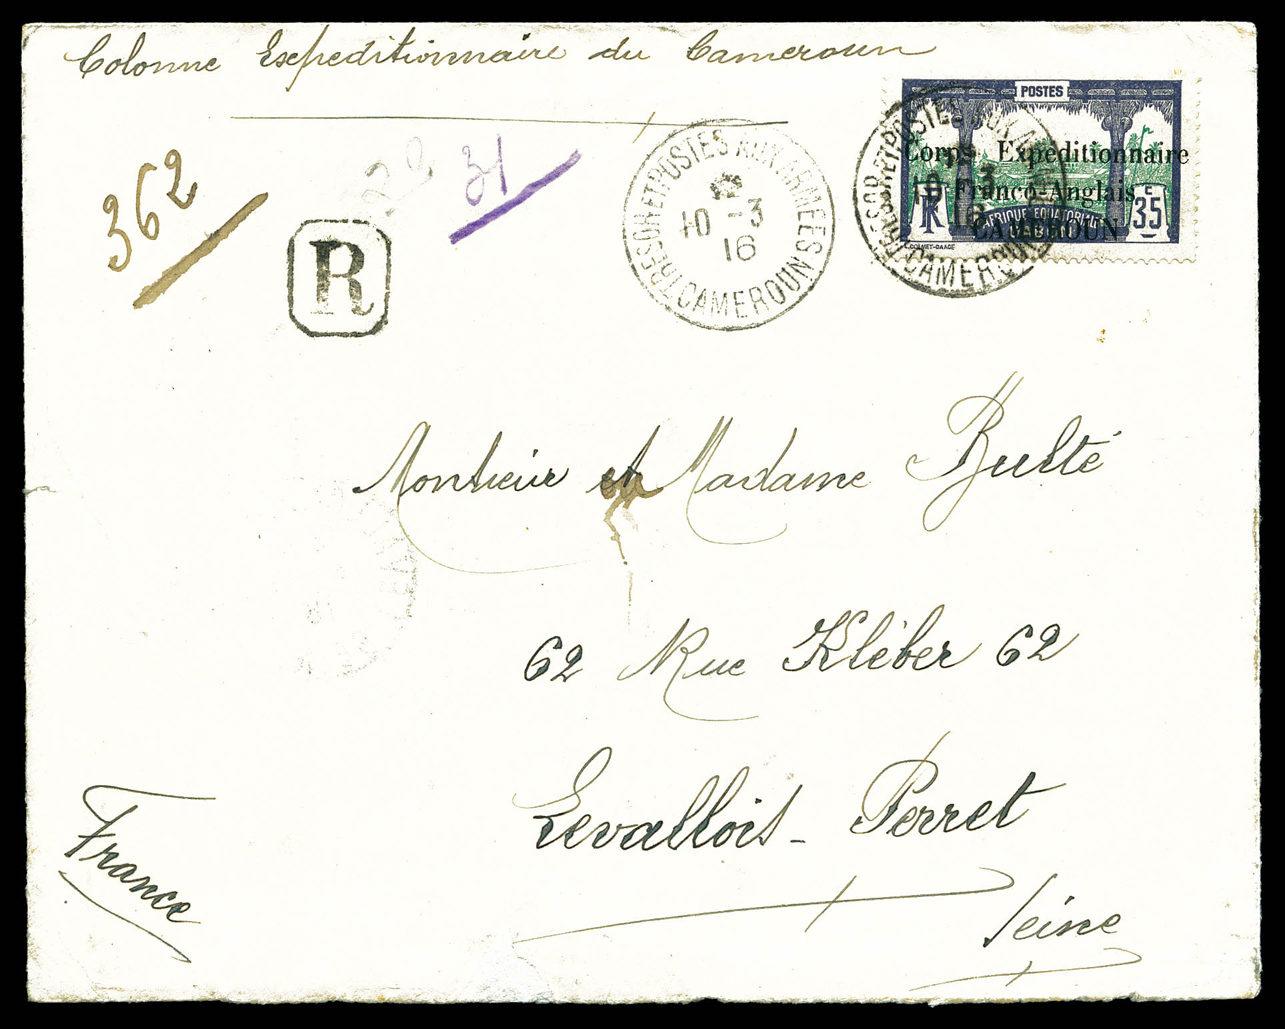 Colonne Expeditionnaire du Cameroun
362
31
R
TRESOR ET POSTES AUX ARMEES
10 -3
16
CAMEROUN
POSTES
Corps Expeditionnaire
Franco-Anglais
CAMEROUN
RF
AFRIQUE EQUATORIALE
GABON
C
35
TRESOR ET POSTES AUX ARMEES
10 -3
16
CAMEROUN
Monsieur et Madame Bulté
62 Rue Kléber 62
Levallois-Perret
Seine
France